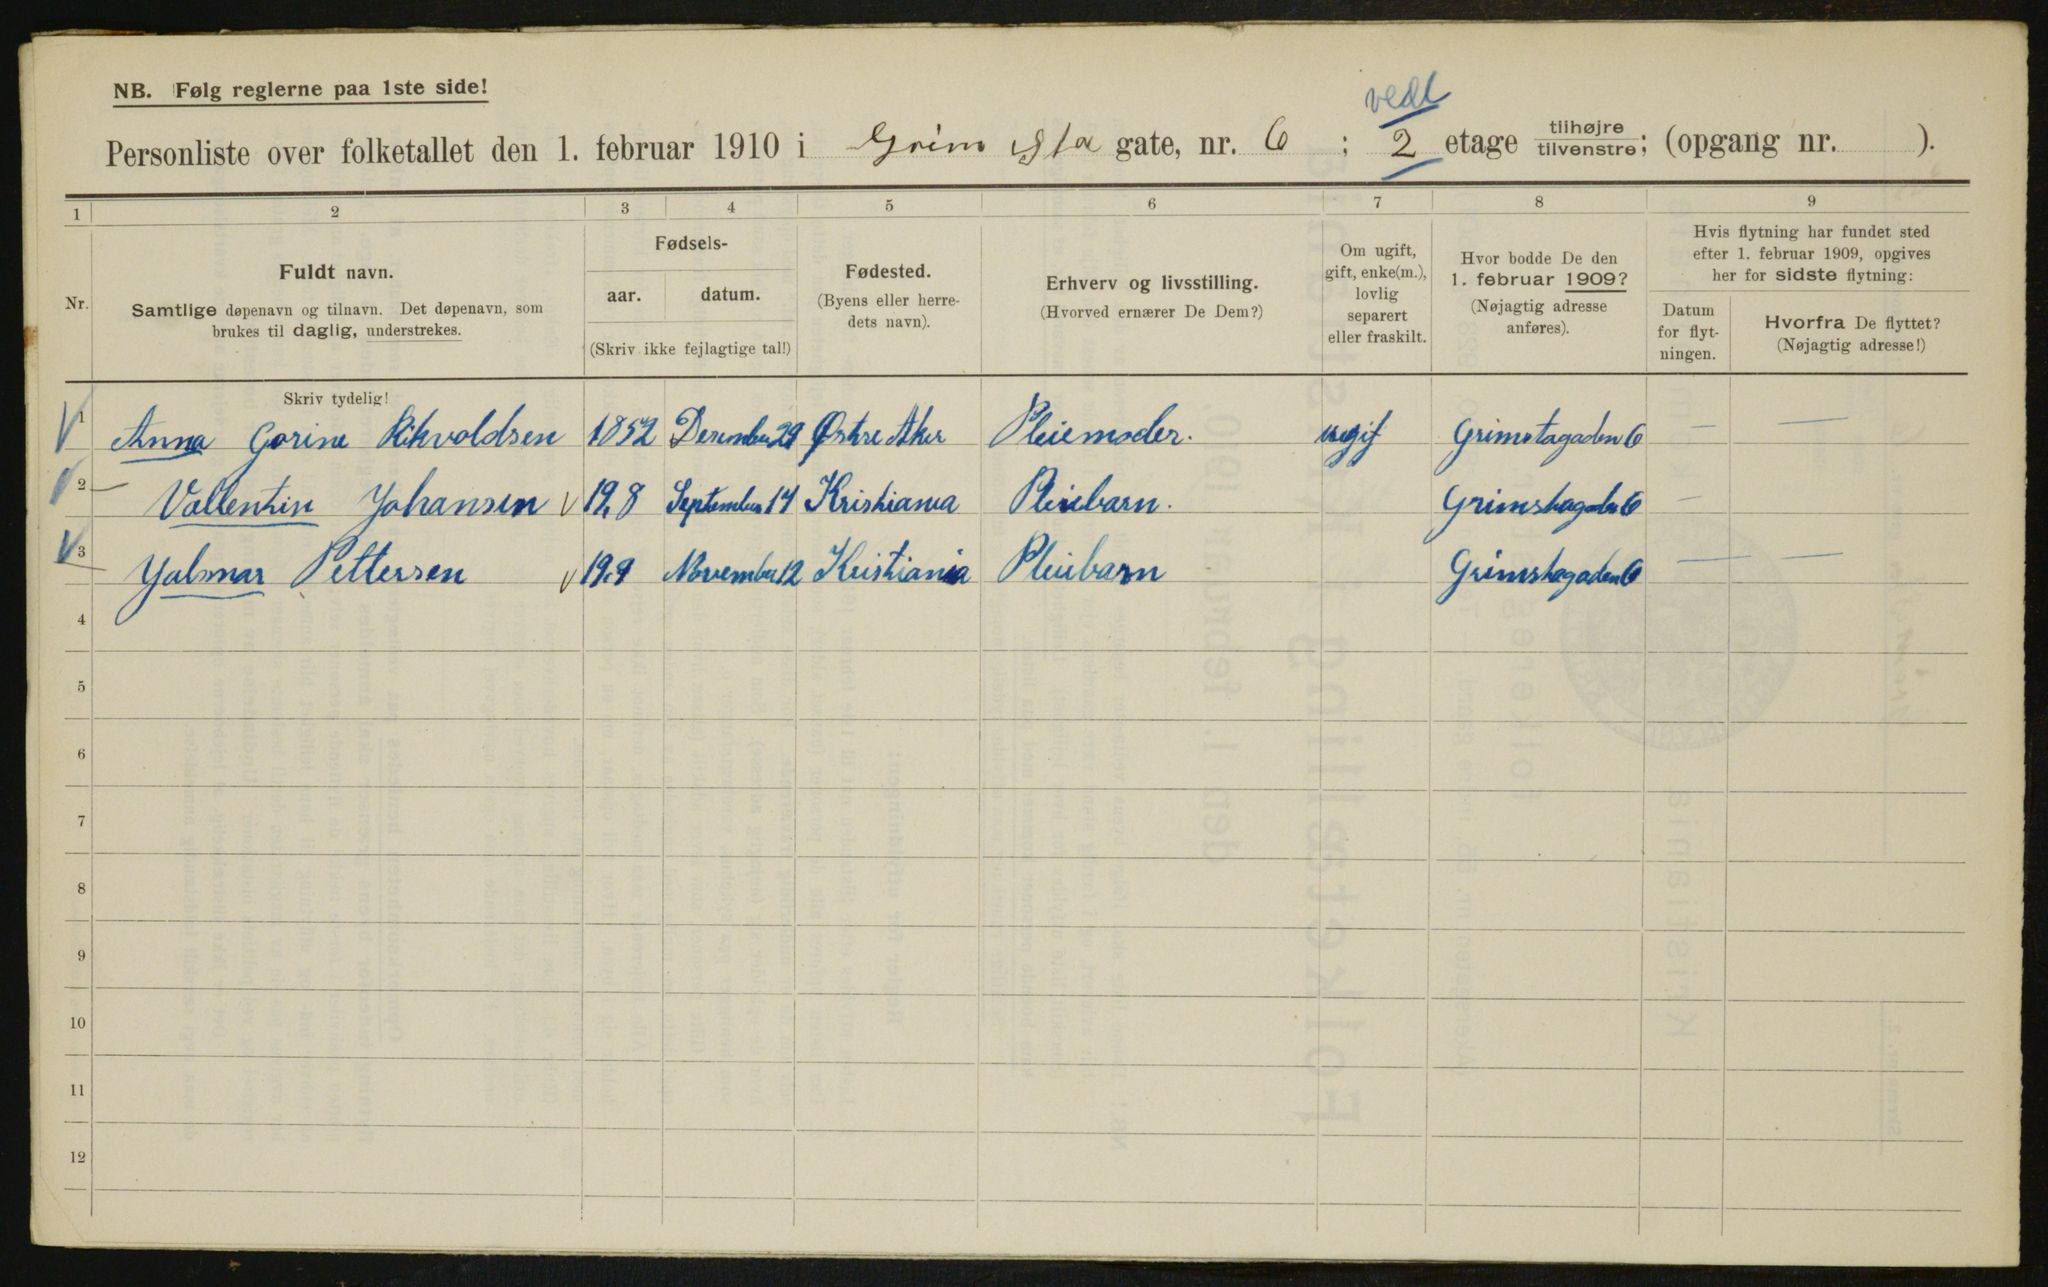 NB. Følg reglerne paa 1ste side!
vedl
Personliste over folketallet den 1. februar 1910 i Grimsta gate, nr. 6 ; 2 etage tilhøjre tilvenstre; (opgang nr. ).
1 2 3 4 5 6 7 8 9
Nr.
Fuldt navn.
Samtlige døpenavn og tilnavn. Det døpenavn, som
brukes til daglig, understrekes.
Fødsels-
aar. datum.
(Skriv ikke fejlagtige tal!)
Fødested.
(Byens eller herre-
dets navn).
Erhverv og livsstilling.
(Hvorved ernærer De Dem?)
Om ugift,
gift, enke(m.),
lovlig
separert
eller fraskilt.
Hvor bodde De den
1. februar 1909?
(Nøjagtig adresse
anføres).
Hvis flytning har fundet sted
efter 1. februar 1909, opgives
her for sidste flytning:
Datum
for flyt-
ningen.
Hvorfra De flyttet?
(Nøjagtig adresse!)
Skriv tydelig!
1 Anna Gorine Rikvoldsen 1852 Desember 29 Østre Aker Pleiemoder. ugif Grimstagaden 6 — —
2 Vallentin Johansen 19.8 September 14 Kristiania Pleiebarn. Grimstagaden 6 —
3 Yalmar Pettersen 19.9 November 12 Kristiania Pleiebarn Grimstagaden 6 — —
4
5
6
7
8
9
10
11
12